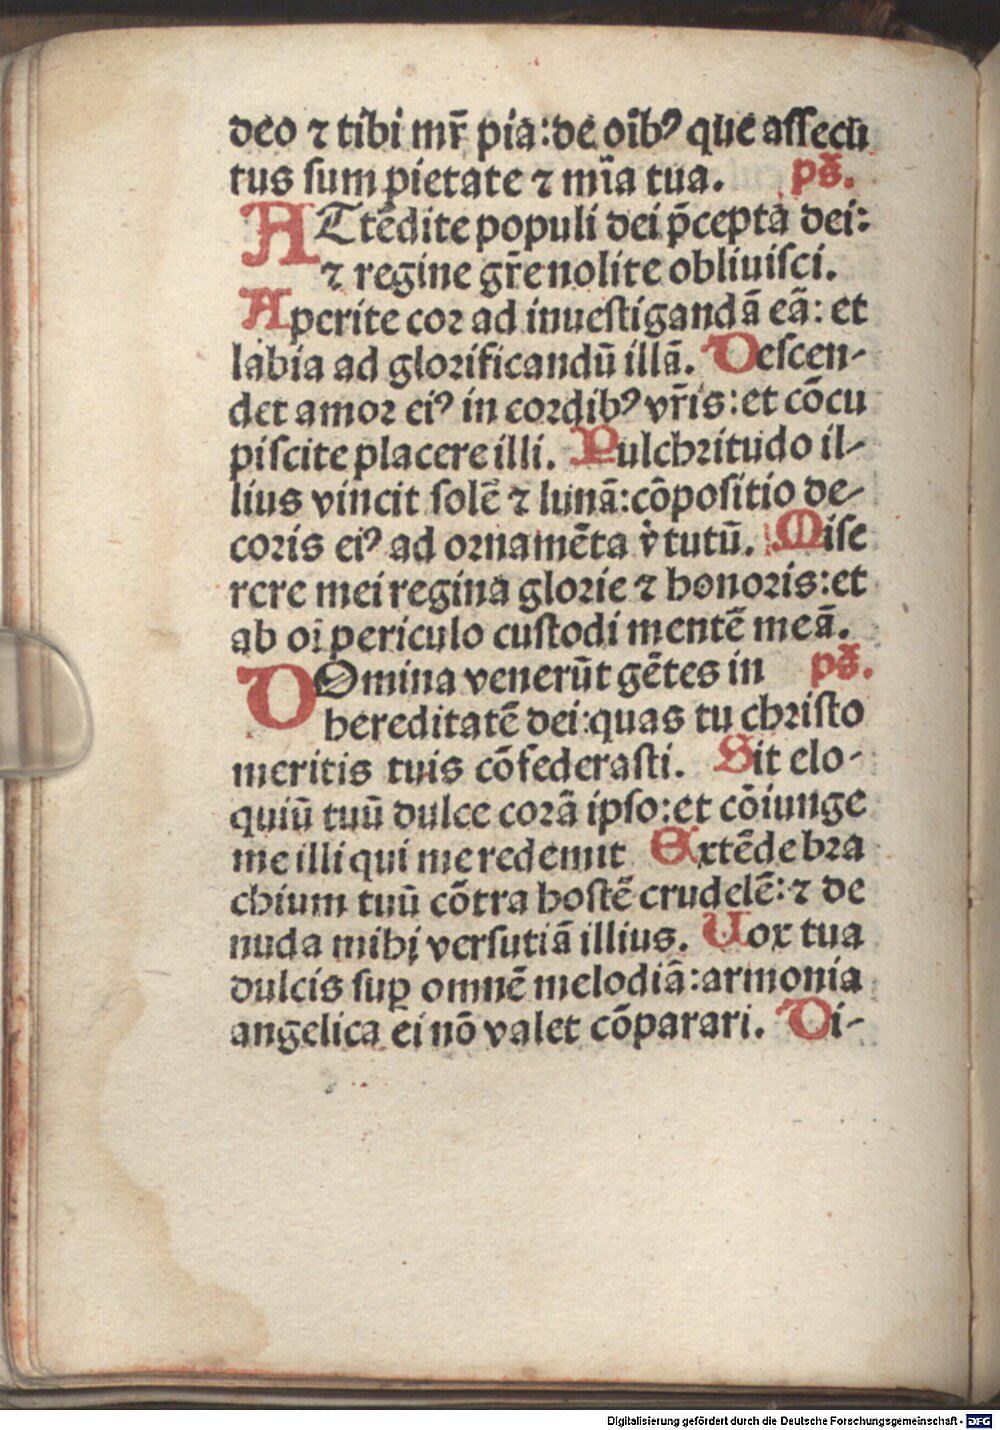 deo ⁊ tibi mr̄ pia: de oībꝰ que assecu
tus sum pietate ⁊ mīa tua. ps̄.
ATtēdite populi dei p̄cepta dei:
⁊ regine gr̄e nolite obliuisci.
Aperite cor ad inuestigandā eā: et
labia ad glorificandū illā. Descen-
det amor eiꝰ in cordibꝰ vr̄is: et cōcu
piscite placere illi. Pulchritudo il-
lius vincit solē ⁊ lunā: cōpositio de-
coris eiꝰ ad ornamēta v̓tutū. Mise
rere mei regina glorie ⁊ honoris: et
ab oī periculo custodi mentē meā.
DOmina venerūt gētes in ps̄.
hereditatē dei: quas tu christo
meritis tuis cōfederasti. Sit elo-
quiū tuū dulce corā ipso: et cōiunge
me illi qui me redemit Extēde bra
chium tuū cōtra hostē crudelē: ⁊ de
nuda mihi versutiā illius. Uox tua
dulcis suꝑ omnē melodiā: armonia
angelica ei nō valet cōparari. Di-
Digitalisierung gefördert durch die Deutsche Forschungsgemeinschaft - DFG